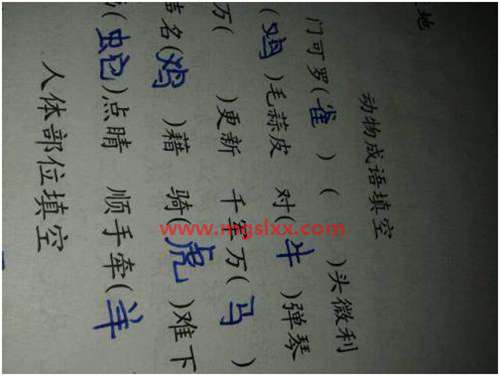 地
动物成语填空
门可罗(雀) ( )头微利
(鸡)毛蒜皮 对(牛)弹琴
万( )更新 千军万(马)
名(鸡)藉 骑(虎)难下
(蛇)点睛 顺手牵(羊)
人体部位填空
www.mgslxx.com